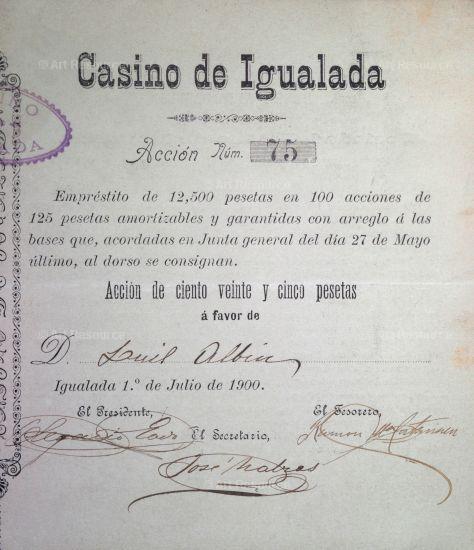 Art Resource
Casino de Igualada
Acción Núm. 75
Empréstito de 12,500 pesetas en 100 acciones de
125 pesetas amortizables y garantidas con arreglo á las
bases que, acordadas en Junta general del día 27 de Mayo
último, al dorso se consignan.
Acción de ciento veinte y cinco pesetas
á favor de
D. Albin
Igualada 1.º de Julio de 1900.
El Presidente, El Tesorero,
El Secretario,
Ramon
José